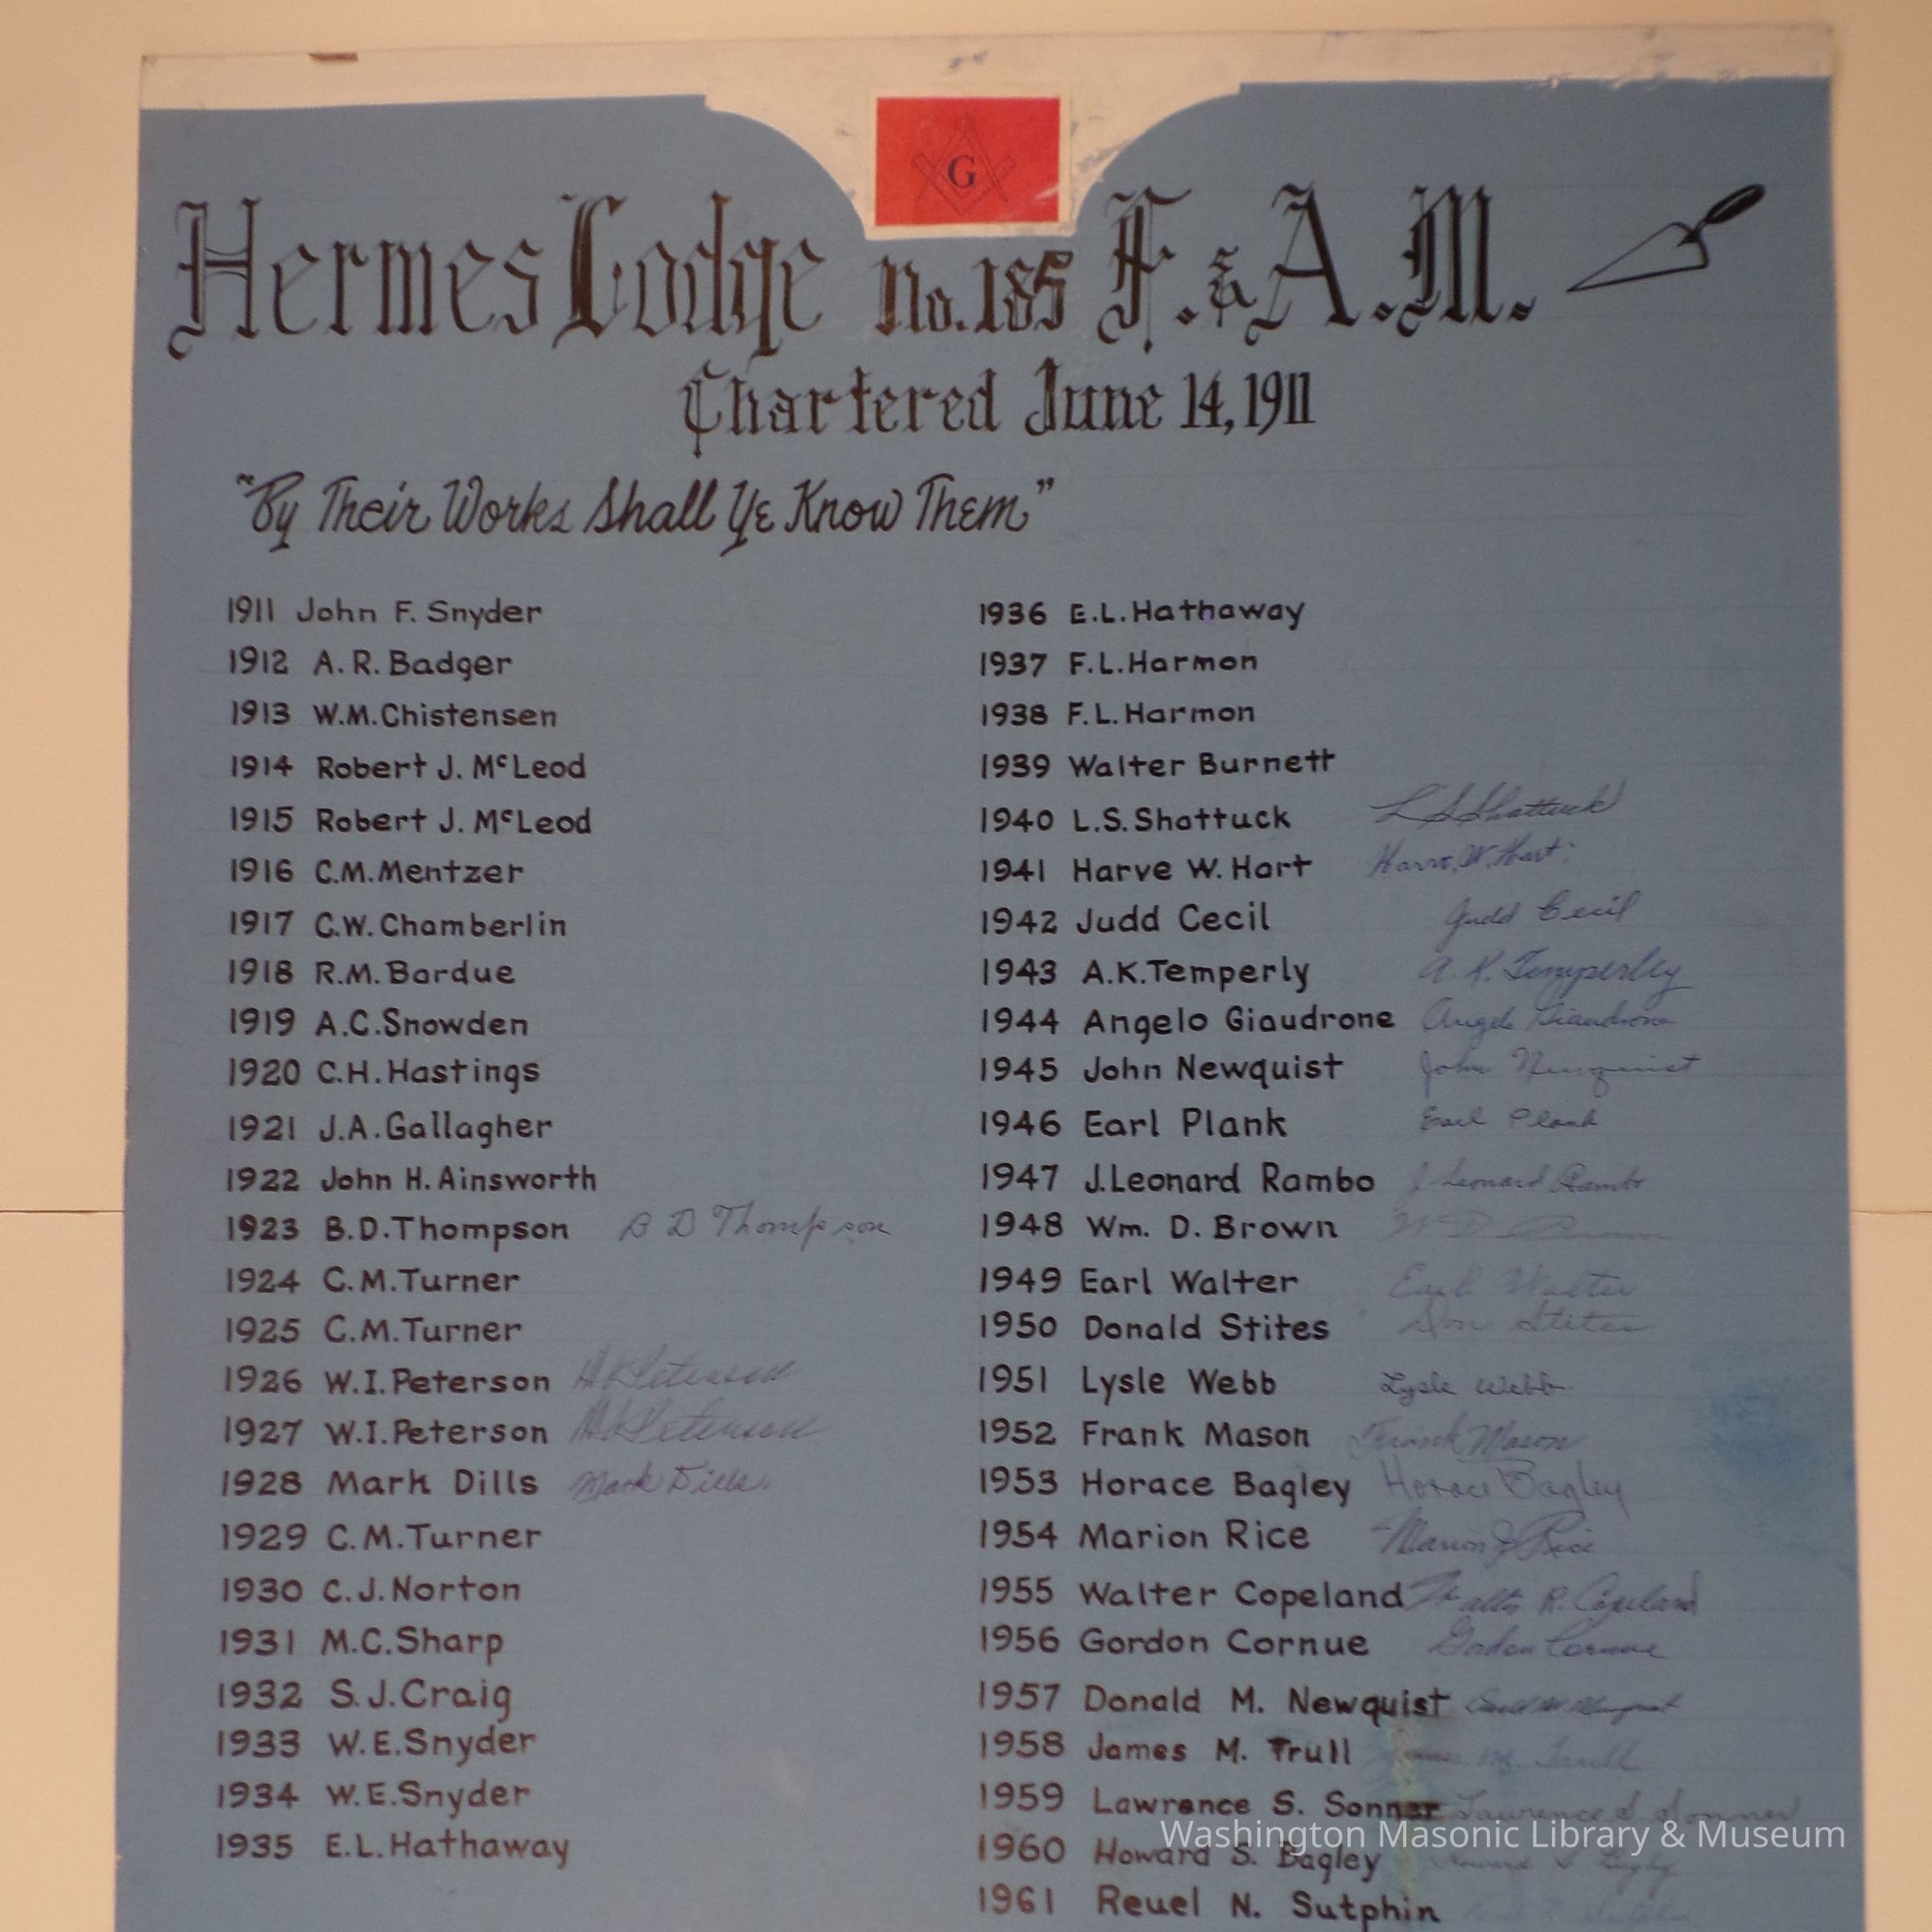 G
Hermes Lodge No. 185 F. & A. M.
Chartered June 14, 1911
"By Their Works Shall Ye Know Them"
1911 John F. Snyder
1912 A. R. Badger
1913 W.M. Chistensen
1914 Robert J. McLeod
1915 Robert J. McLeod
1916 C.M. Mentzer
1917 C.W. Chamberlin
1918 R.M. Bardue
1919 A.C. Snowden
1920 C.H. Hastings
1921 J.A. Gallagher
1922 John H. Ainsworth
1923 B.D. Thompson B D Thompson
1924 C.M. Turner
1925 C.M. Turner
1926 W.I. Peterson W I Peterson
1927 W.I. Peterson W I Peterson
1928 Mark Dills Mark Dills.
1929 C.M. Turner
1930 C.J. Norton
1931 M.C. Sharp
1932 S.J. Craig
1933 W.E. Snyder
1934 W.E. Snyder
1935 E.L. Hathaway
1936 E.L. Hathaway
1937 F.L. Harmon
1938 F.L. Harmon
1939 Walter Burnett
1940 L.S. Shattuck L S Shattuck
1941 Harve W. Hart Harve. W. Hart
1942 Judd Cecil Judd Cecil
1943 A.K. Temperly A. K. Temperley
1944 Angelo Giaudrone Angelo Giaudrone
1945 John Newquist John Newquist
1946 Earl Plank Earl Plank
1947 J. Leonard Rambo J Leonard Rambo
1948 Wm. D. Brown W D Brown
1949 Earl Walter Earl Walter
1950 Donald Stites Don Stites
1951 Lysle Webb Lysle Webb
1952 Frank Mason Frank Mason
1953 Horace Bagley Horace Bagley
1954 Marion Rice Marion J Rice
1955 Walter Copeland Walter R. Copeland
1956 Gordon Cornue Gordon Cornue
1957 Donald M. Newquist Donald M Newquist
1958 James M. Trull James M. Trull
1959 Lawrence S. Sonner Lawrence S. Sonner
1960 Howard S. Bagley Howard S Bagley
1961 Reuel N. Sutphin
Washington Masonic Library & Museum